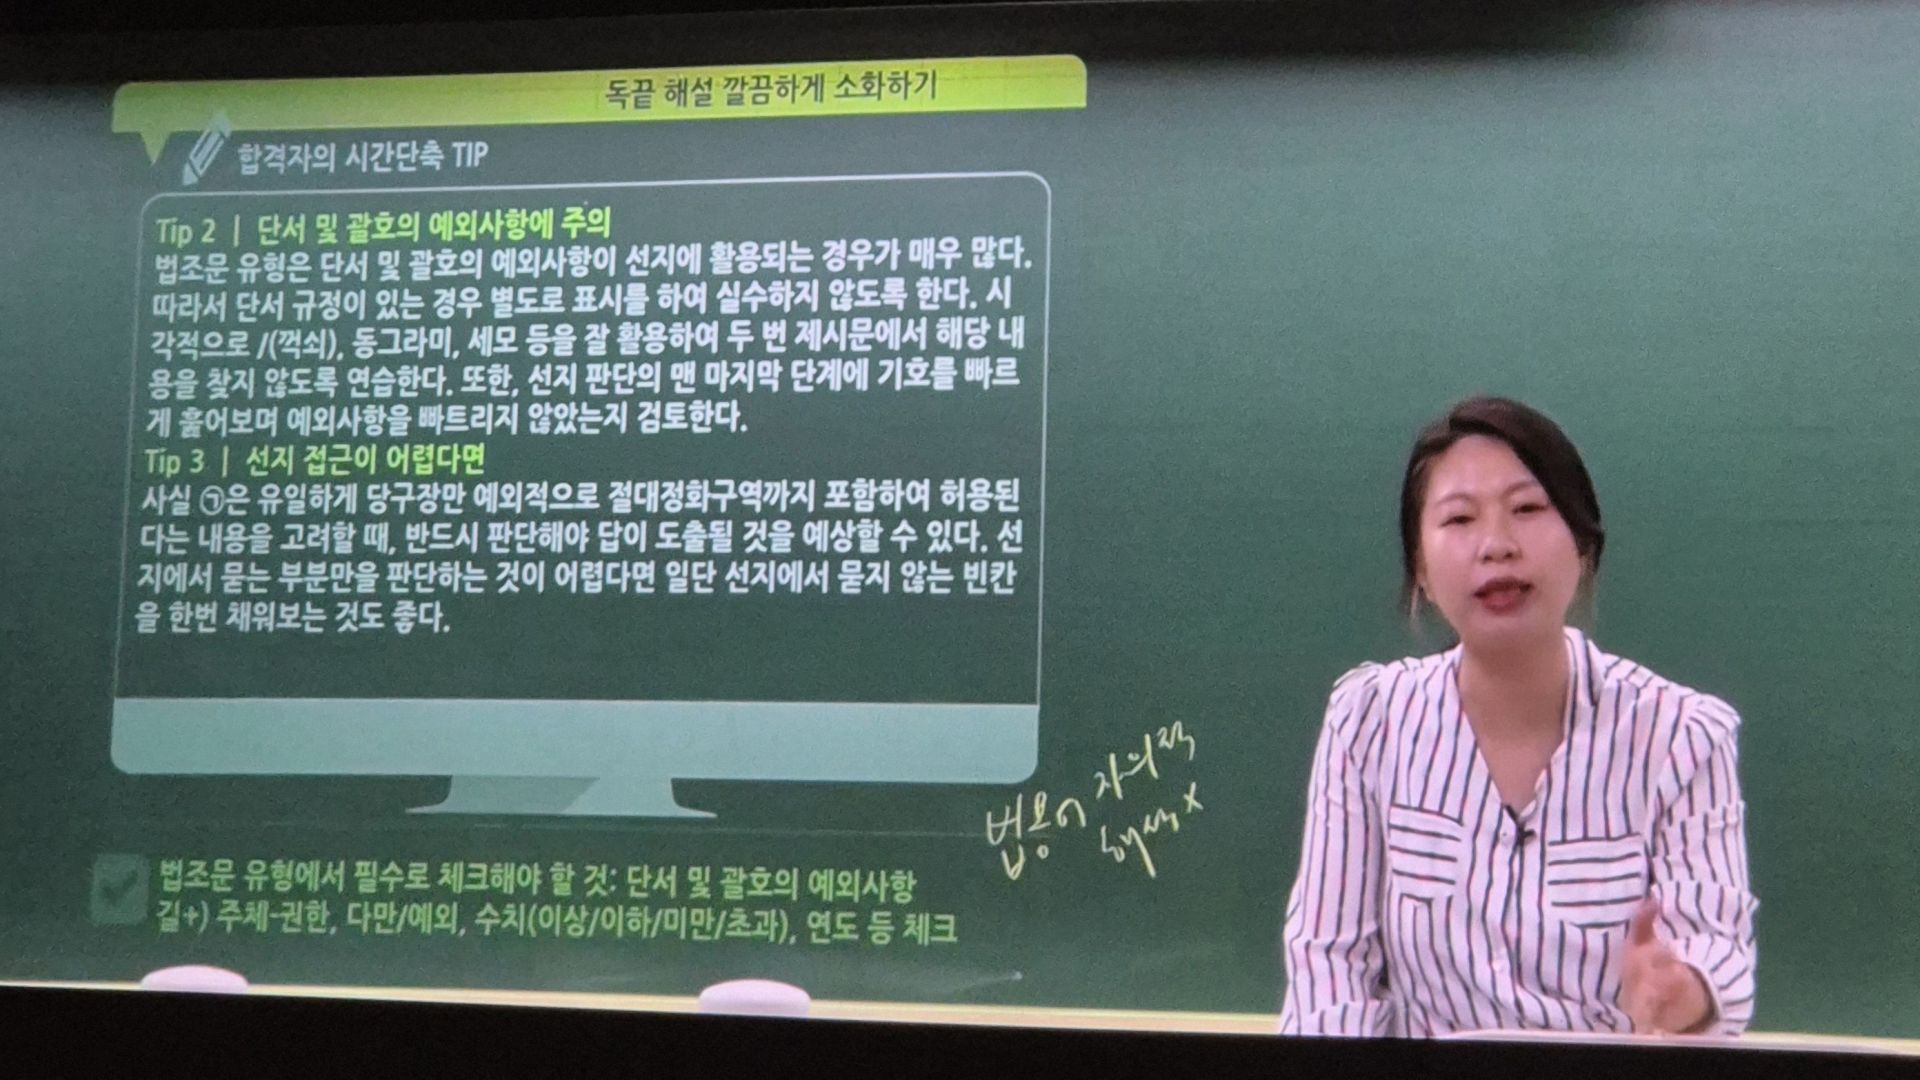 독끝 해설 깔끔하게 소화하기
합격자의 시간단축 TIP
Tip 2 | 단서 및 괄호의 예외사항에 주의
법조문 유형은 단서 및 괄호의 예외사항이 선지에 활용되는 경우가 매우 많다.
따라서 단서 규정이 있는 경우 별도로 표시를 하여 실수하지 않도록 한다. 시
각적으로 /(꺽쇠), 동그라미, 세모 등을 잘 활용하여 두 번 제시문에서 해당 내
용을 찾지 않도록 연습한다. 또한, 선지 판단의 맨 마지막 단계에 기호를 빠르
게 훑어보며 예외사항을 빠트리지 않았는지 검토한다.
Tip 3 | 선지 접근이 어렵다면
사실 ㉠은 유일하게 당구장만 예외적으로 절대정화구역까지 포함하여 허용된
다는 내용을 고려할 때, 반드시 판단해야 답이 도출될 것을 예상할 수 있다. 선
지에서 묻는 부분만을 판단하는 것이 어렵다면 일단 선지에서 묻지 않는 빈칸
을 한번 채워보는 것도 좋다.
법용어 자의적
해석 x
법조문 유형에서 필수로 체크해야 할 것: 단서 및 괄호의 예외사항
길+) 주체-권한, 다만/예외, 수치(이상/이하/미만/초과), 연도 등 체크